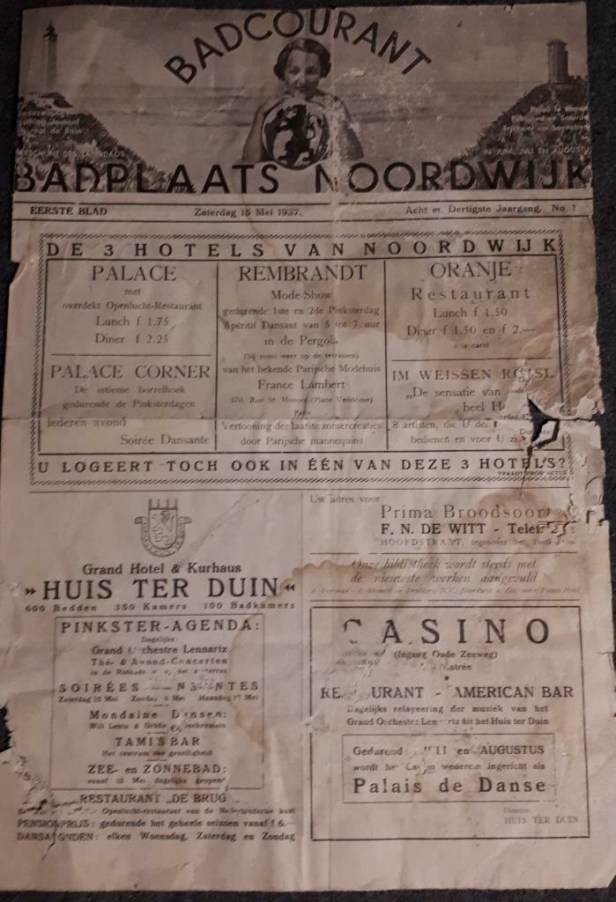 BADCOURANT
BADPLAATS NOORDWIJK
EERSTE BLAD
Zaterdag 15 Mei 1937.
Acht en Dertigste Jaargang. No. 1
DE 3 HOTELS VAN NOORDWIJK
PALACE
met
overdekt Openlucht-Restaurant
Lunch f 1.75
Diner f 2.25
PALACE CORNER
De intieme borrelhoek
gedurende de Pinksterdagen
iederen avond
Soirée Dansante
REMBRANDT
Mode-Show
gedurende 1ste en 2de Pinksterdag
Apéritif Dansant van 5 tot 7 uur
in de Pergola
van het bekende Parijsche Modehuis
France Lambert
Parijs
Vertooning der laatste zomercreaties
door Parijsche mannequins
ORANJE
Restaurant
Lunch f 1.50
Diner f 1.50 en f 2.—
à la carte
IM WEISSEN
„De sensatie van
heel
8 artisten, die U
bedienen en voor U
U LOGEERT TOCH OOK IN ÉÉN VAN DEZE 3 HOTELS?
Grand Hotel & Kurhaus
„HUIS TER DUIN“
600 Bedden 350 Kamers 100 Badkamers
PINKSTER-AGENDA:
Dagelijks:
Grand Orchestre Lennartz
Thé- & Avond-Concerten
SOIRÉES
Zaterdag 15 Mei Zondag Mei Maandag 17 Mei
Mondaine Dansen:
TAMISBAR
Het centrum van gezelligheid
ZEE- en ZONNEBAD:
vanaf 15 Mei dagelijks geopend
RESTAURANT „DE BRUG
Openlucht-restaurant van de Nederlandsche kust
PENSIONPRIJS: gedurende het geheele seizoen vanaf f 6.—
DANSAVONDEN: elken Woensdag, Zaterdag en Zondag
Uw adres voor
Prima Broodsoorten
F. N. DE WITT - Telef.
HOOFDSTRAAT,
Onze bibliotheek wordt steeds met
de nieuwste werken aangevuld
CASINO
(Ingang Oude Zeeweg)
RESTAURANT - AMERICAN BAR
Dagelijks relayeering der muziek van het
Grand Orchestre Lennartz uit het Huis ter Duin
Gedurende JULI en AUGUSTUS
wordt het Casino wederom ingericht als
Palais de Danse
Directie
HUIS TER DUIN